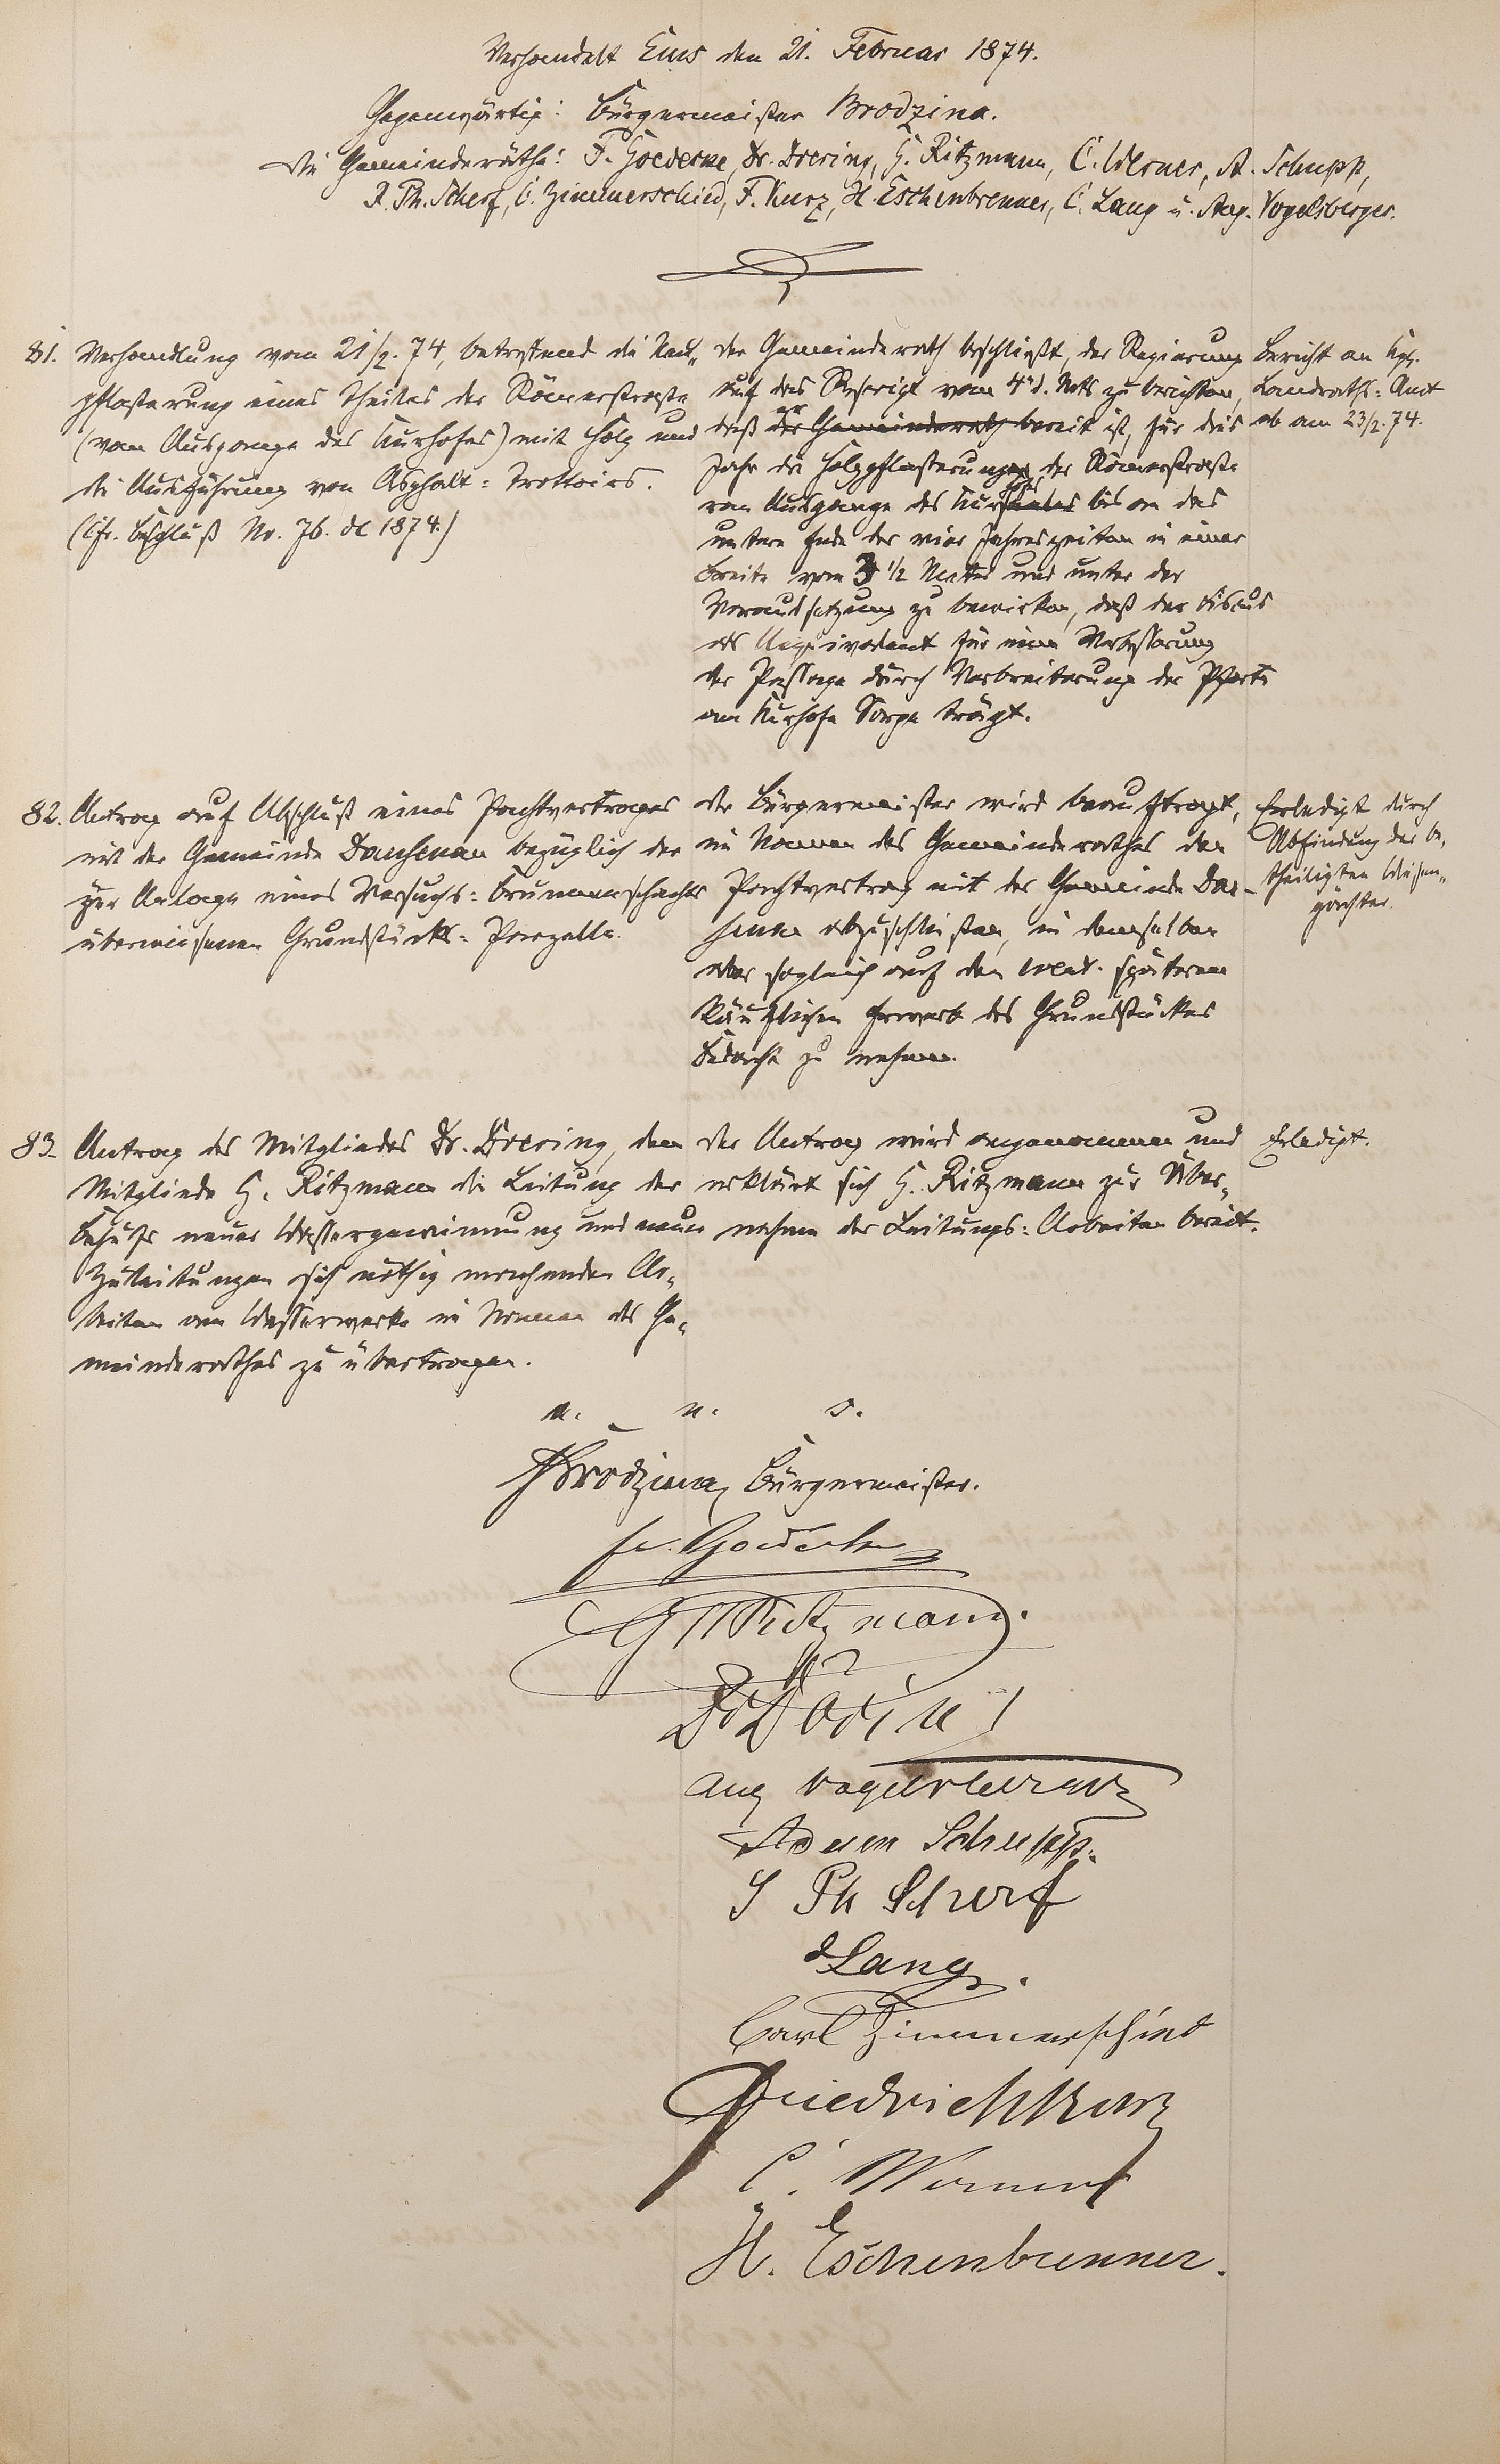 Verhandelt Ems den 21. Februar 1874.
Gegenwärtig: Bürgermeister Brodzina.
Die Gemeinderäthe: F. Goedecke, Dr. Doering, G. Ritzmann, C. Werner, A. Schupp,
J. Ph. Scherf, C. Zimmerschied, F. Kurz, H. Eschenbrenner, C. Lang u. Aug. Vogelsberger.
81. Verhandlung vom 21/2. 74, betreffend die Neu-
pflasterung eines Theiles der Römerstraße
(vom Ausgange des Kurhofes) mit Holz und
die Ausführung von Asphalt-Trottoirs.
(Cfr. Beschluß No. 76. de 1874.)
der Gemeinderath beschließt, der Regierung
auf das Rescript vom 4t d. Mts zu berichten,
daß er der Gemeinderath bereit ist, für dies
Jahr die Holzpflasterungen der Römerstraße
vom Ausgange des Kursaales bis an das
untere Ende der vier Jahreszeiten in einer
Breite von 3 1/2 Meter und unter der
Voraussetzung zu bewirken, daß der Fiscus
als Aequivalent für eine Verbesserung
der Passage durch Verbreiterung der Pforte
am Kurhofe Sorge trägt.
Bericht an Kgl.
Landraths-Amt
ab am 23/2. 74.
82. Antrag auf Abschluß eines Pachtvertrages
mit der Gemeinde Dausenau bezüglich der
zur Anlage eines Versuchs-Brunnenschachtes
überwiesenen Grundstücks-Parzelle.
der Bürgermeister wird beauftragt,
im Namen des Gemeinderathes den
Pachtvertrag mit der Gemeinde Dau-
senau abzuschließen, in demselben
aber sogleich auf den event. späteren
käuflichen Erwerb des Grundstückes
Bedacht zu nehmen.
Erledigt durch
Abfindung der be-
theiligten Wiesen-
pächter.
83. Antrag des Mitgliedes Dr. Doering, dem
Mitgliede G. Ritzmann die Leitung der
behufs neuer Wassergewinnung und neuer
Zuleitungen sich nöthig machenden Ar-
beiten am Wasserwerke im Namen des Ge-
meinderathes zu übertragen.
der Antrag wird angenommen und
erklärt sich G. Ritzmann zur Über-
nahme der Leitungs-Arbeiten bereit.
Erledigt.
a. u. s.
Brodzina, Bürgermeister.
Fr. Goedecke
G Ritzmann.
Dr Döring
Aug Vogelsberger
Adam Schupp.
J Ph Scherf
C Lang.
Carl Zimmerschied
Friedrich Kurz
C. Werner
H. Eschenbrenner.